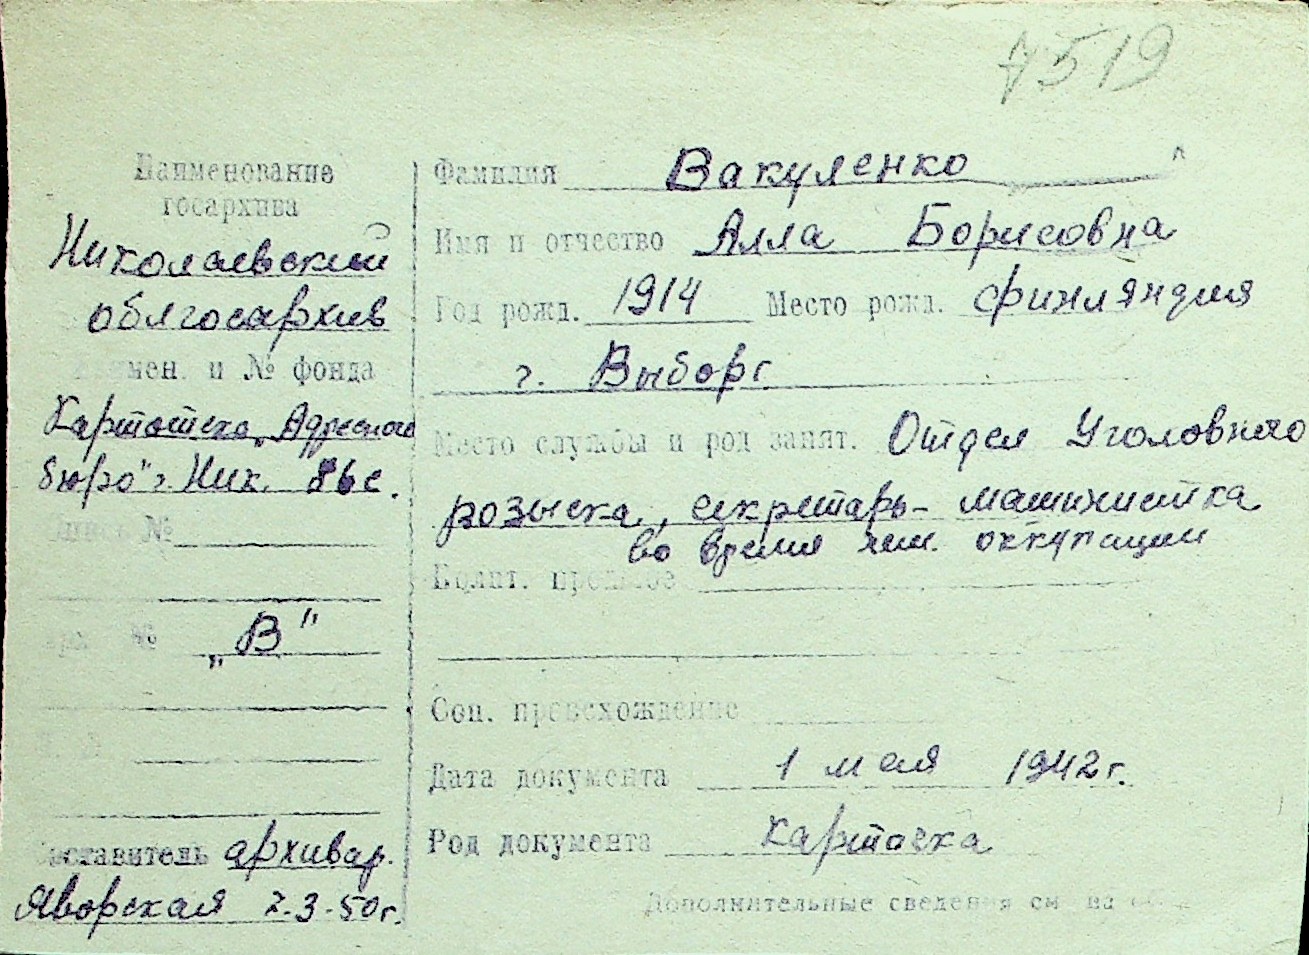 7519
Наименование
госархива
Николаевский
облгосархив
мен. и № фонда
Картотека „Адресного
бюро" г. Ник. 86с.
Опись №
№ „В"
Составитель архивар.
Яворская 7.3.50г.
Фамилия Вакуленко
Имя и отчество Алла Борисовна
Год рожд. 1914 Место рожд. Финляндия
г. Выборг
Место службы и род занят. Отдел Уголовного
розыска, секретарь-машинистка
во время нем. оккупации
Полит. прошлое
Соц. происхождение
Дата документа 1 мая 1942 г.
Род документа карточка
Дополнительные сведения см на